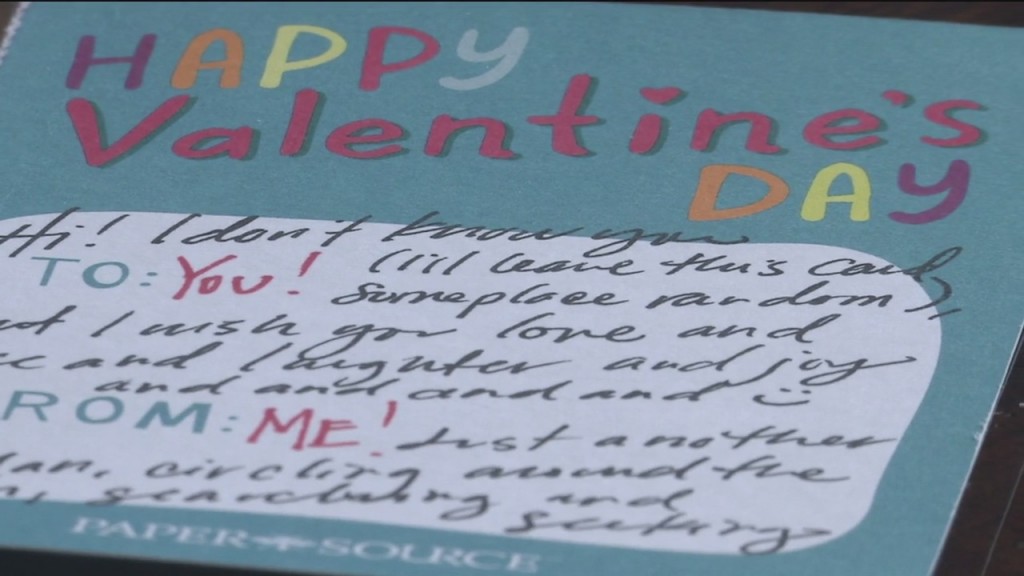 HAPPY
Valentine's
DAY
Hi! I don't know you
TO: You! (I'll leave this card
someplace random),
I wish you love and
and laughter and joy
and and and and :)
ROM: ME! Just another
circling around the
searching and seeking
PAPER SOURCE